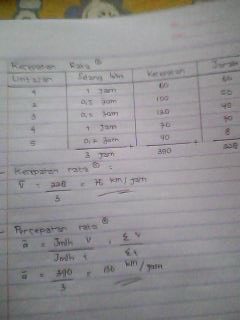 Kecepatan Rata ②
Lintasan Selang Wkt Kecepatan Jarak
1 1 jam 60 60
2 0,5 jam 100 50
3 jam 120 40
4 1 jam 70 70
5 0,2 jam 40 8
3 jam 390 228
- Kecepatan rata ② :
V̄ = 228 = 76 km/jam
3
- Percepatan rata ②
ā = Jmlh V , Σ V
Jmlh t Σ t
ā = 390 = 130 km/jam
3